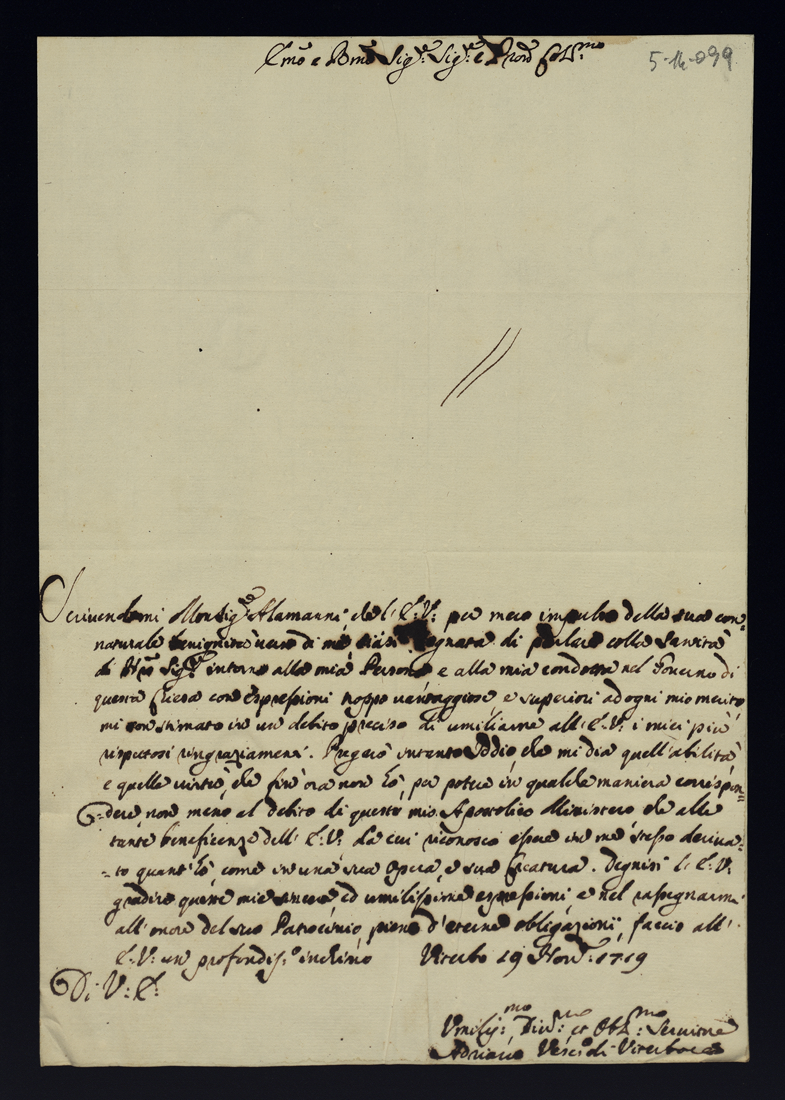 Emo e Rmo Sig.e Sig.e e Pron Col.mo
5-14-099
Scrivendomi Monsig.e Alamanni, che l'E:V: per mero impulso della sua con-
naturale benignità verso di me siasi degnata di parlare colla Santità
di Nro Sig.e intorno alla mia Persona e alla mia condotta nel Governo di
questa Chiesa con espressioni troppo vantaggiose, e superiori ad ogni mio merito
mi son stimato in un debito preciso di umiliarne all'E:V: i miei più
rispettosi ringraziamenti. Pregarò intanto Iddio che mi dia quell'abilità,
e quelle virtù, che fin'ora non hò, per potere in qualche maniera corrispon-
dere non meno al debito di questo mio Apostolico Ministero che alle
tante beneficenze dell'E:V: da cui riconosco essere in me stesso deriva-
to quant'hò, come in una sua opera, e sua Creatura. Degnisi l'E:V:
gradire queste mie sincere ed umilissime espressioni, e nel rassegnarmi
all'onore del suo Patrocinio pieno d'eterne obligazioni, faccio all'
E:V: un profondiss.o inchino Viterbo 19 Nov.e 1719
Di V: E:
Umiliss.mo Div.mo et Obl.mo Servitore
Adriano Vesc.o di Viterbo